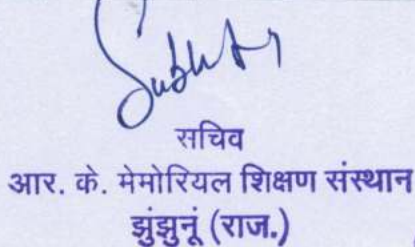 सचिव
आर. के. मेमोरियल शिक्षण संस्थान
झुंझुनूं (राज.)